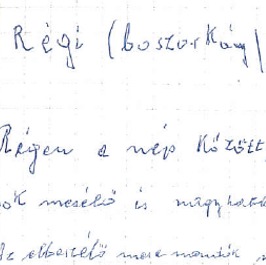 Régi (boszorkány
Régen a nép között
sok mesélő is nagyhatal
Az elbeszélő mese mondók